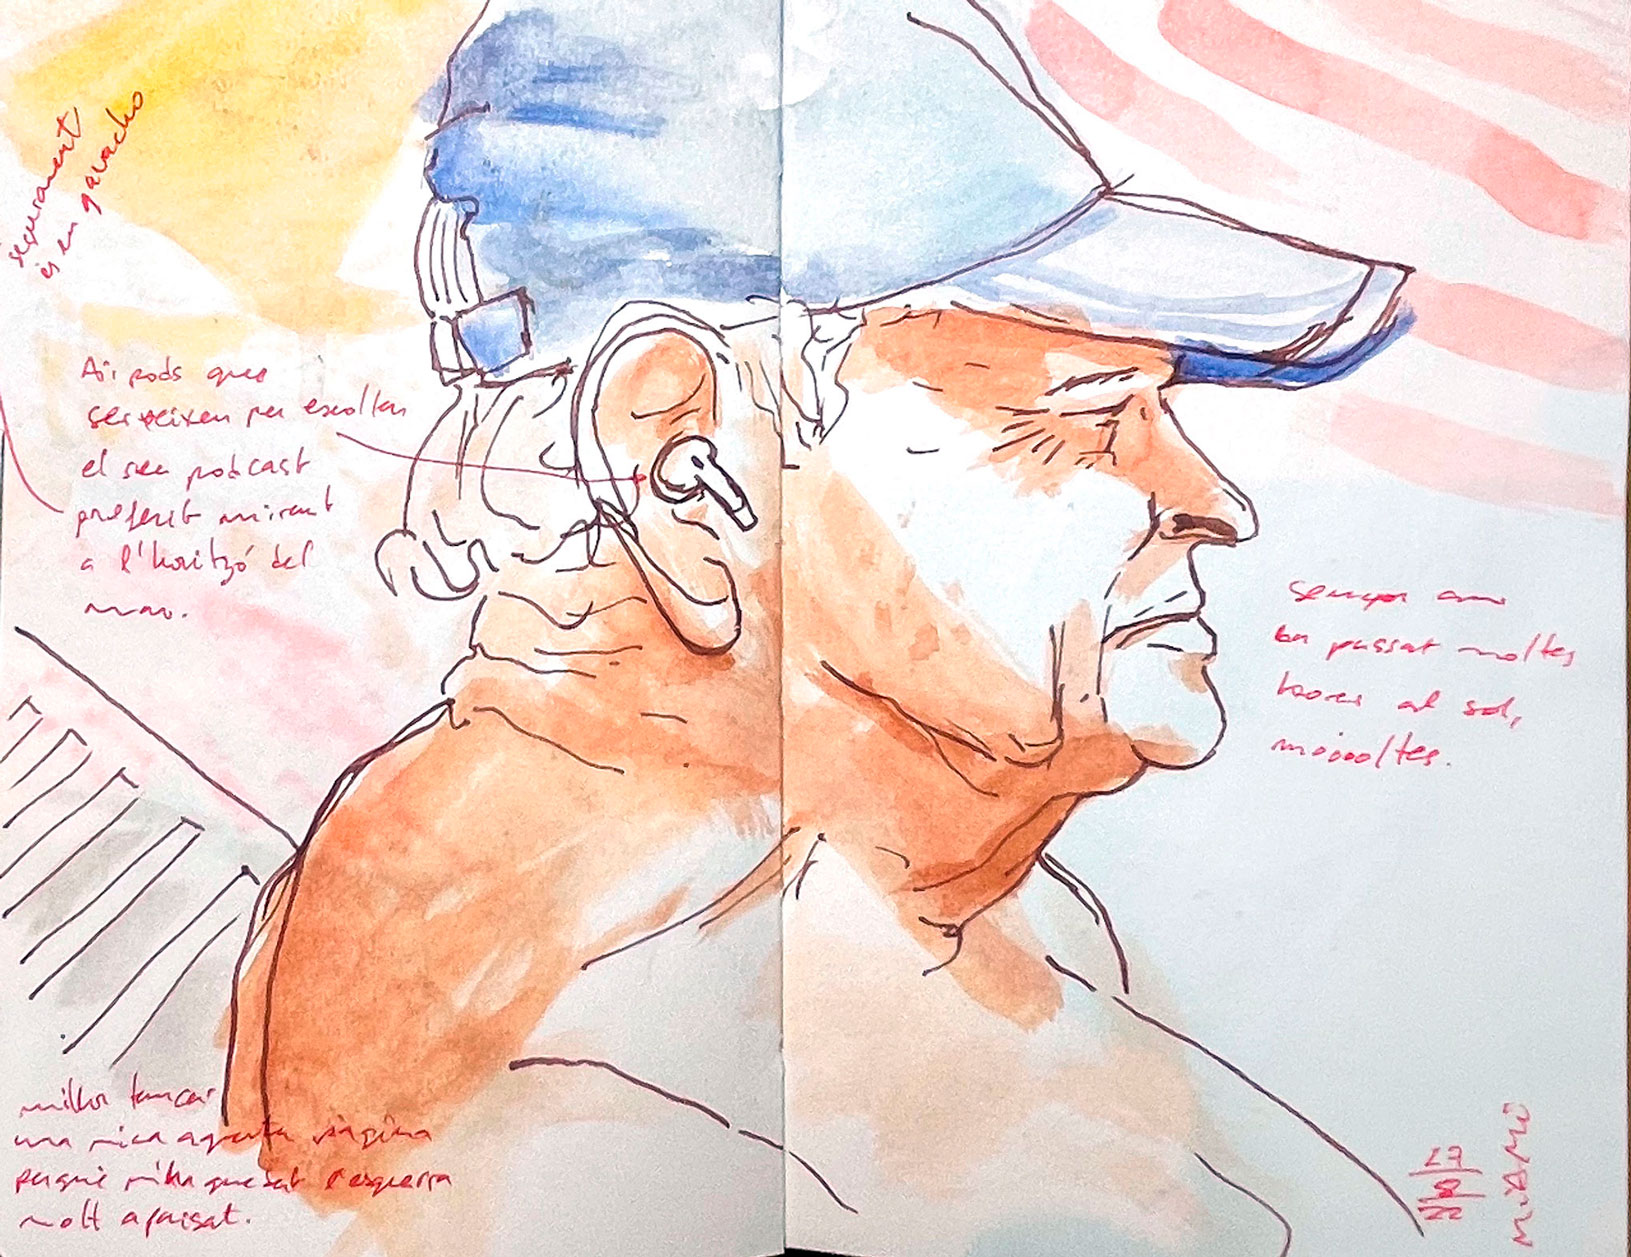 segurament
és en gavacho
Air pods que
serveixen per escoltar
el seu podcast
preferit mirant
a l'horitzó del
mar.
senyor amb
ha passat moltes
hores al sol,
moioooltes.
millor tancar
una mica aquesta pàgina
perquè m'ha quedat l'esquerra
molt aparsat.
MIAMI
27
22